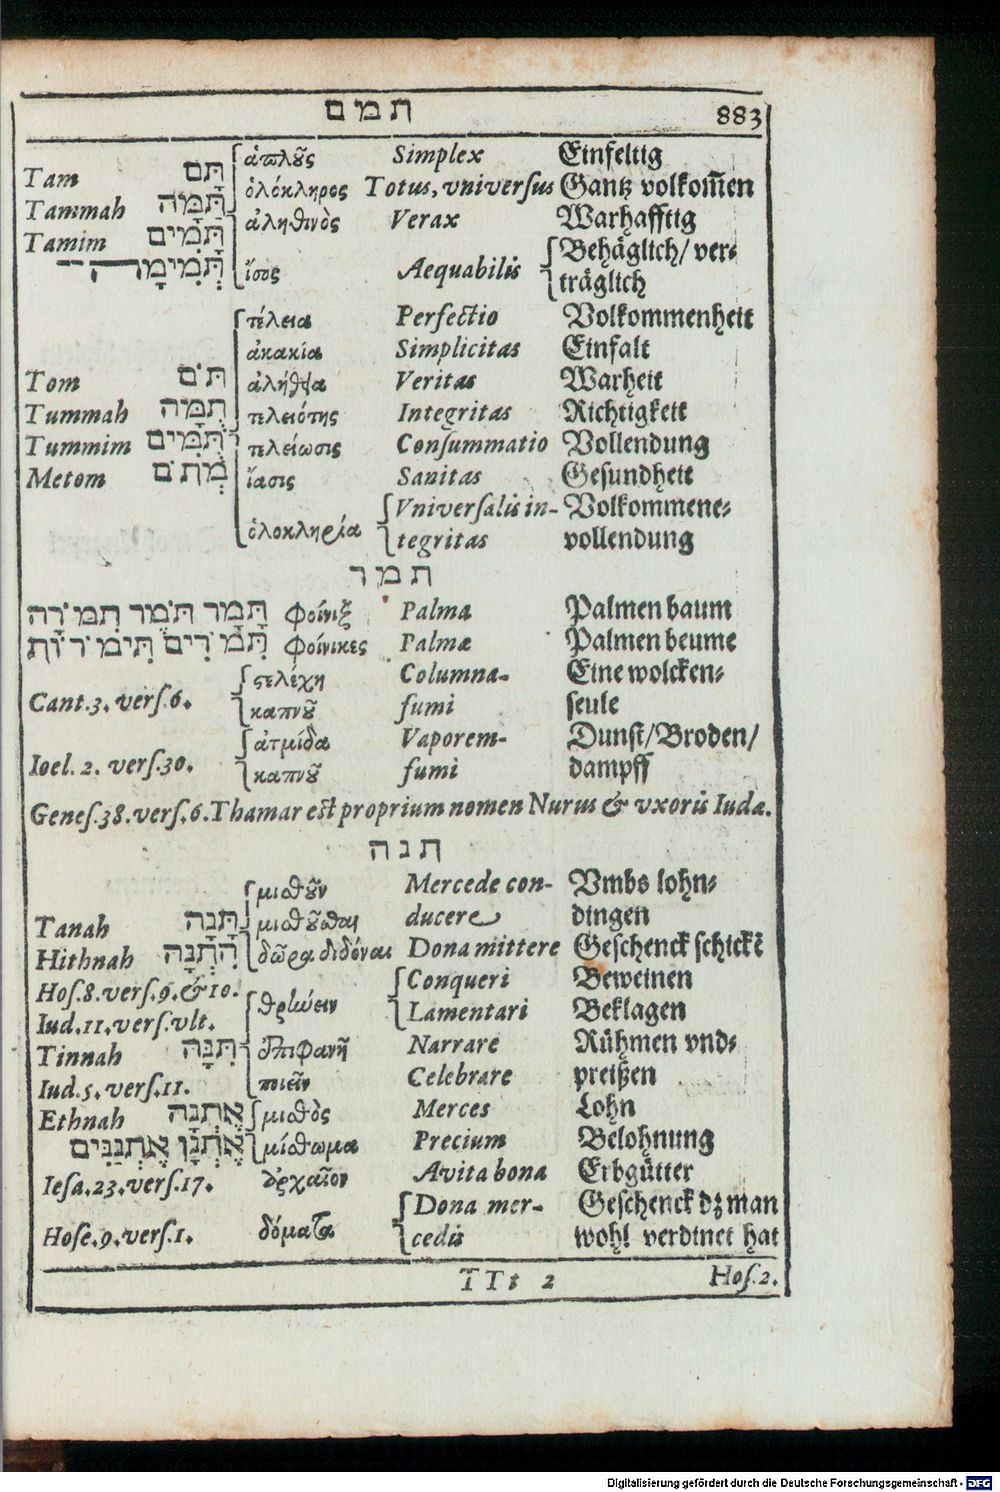 תמם 883
Tam תָּם ἁπλοῦς Simplex Einfeltig
ὁλόκληρος Totus, vniversus Gantz volkom̃en
Tammah תַּמָּה ἀληθινὸς Verax Warhafftig
Tamim תָּמִים
ἴσος Aequabilis Behäglich/ ver-
träglich
τέλεια Perfectio Volkommenheit
ἀκακία Simplicitas Einfalt
Tom תֹּם ἀλήθεια Veritas Warheit
Tummah תֻּמָּה τελειότης Integritas Richtigkeit
Tummim תֻּמִּים τελείωσις Consummatio Vollendung
Metom מְתֹם ἴασις Sanitas Gesundheit
Vniversalis in- Volkommene-
ὁλοκληρία tegritas vollendung
תמר
תָּמָר תֹּמֶר תִּמֹרָה Φοίνιξ Palma Palmen baum
תְּמָרִים תִּימֹרוֹת Φοίνικες Palmæ Palmen beume
ϛελέχη Columna- Eine wolcken-
Cant.3. vers.6. καπνοῦ fumi seule
ἀτμίδα Vaporem- Dunst/Broden/
Ioel. 2. vers.30. καπνοῦ fumi dampff
Genes.38.vers.6.Thamar est proprium nomen Nurus & vxoris Iudæ.
תנה
μισθοῦν Mercede con- Vmbs lohn-
Tanah תָּנָה μισθοῦσθαι ducere dingen
Hithnah הִתְנָה δῶρα διδόναι Dona mittere Geschenck schickẽ
Hos.8.vers.9.&10. Conqueri Beweinen
Iud.11.vers.vlt. θρηνεῖν Lamentari Beklagen
Tinnah תִּנָּה ἐπιφανῆ Narrare Rühmen vnd-
Iud.5.vers.11. ποιεῖν Celebrare preißen
Ethnah אֶתְנָה μισθὸς Merces Lohn
אֶתְנָן אֶתְנַנִּים μίσθωμα Precium Belohnung
Iesa.23.vers.17. ἀρχαῖον Avita bona Erbgütter
Dona mer- Geschenck dz man
Hose.9.vers.1. δόματα cedis wohl verdinet hat
TTt 2 Hos.2.
Digitalisierung gefördert durch die Deutsche Forschungsgemeinschaft - DFG